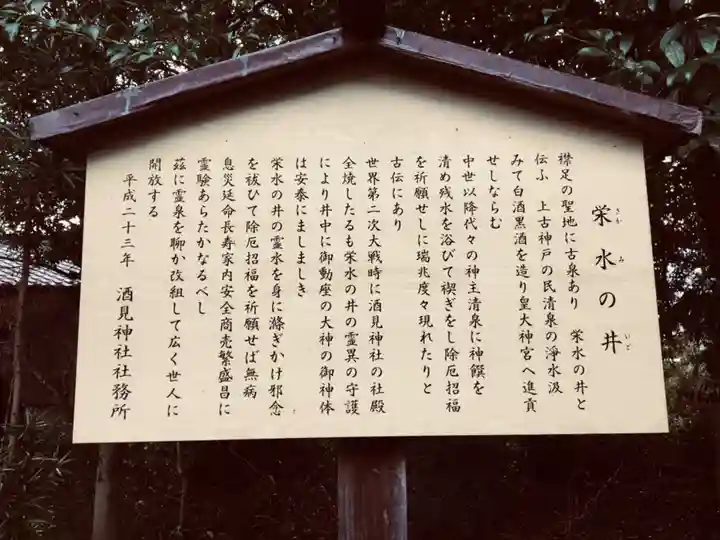 栄水の井
さか み いど
襟足の聖地に古泉あり 栄水の井と
伝ふ 上古神戸の民清泉の浄水汲
みて白酒黒酒を造り皇大神宮へ進貢
せしならむ
中世以降代々の神主清泉に神饌を
清め残水を浴びて禊ぎをし除厄招福
を祈願せしに瑞兆度々現れたりと
古伝にあり
世界第二次大戦時に酒見神社の社殿
全焼したるも栄水の井の霊異の守護
により井中に御動座の大神の御神体
は安泰にましましき
栄水の井の霊水を身に滌ぎかけ邪念
を祓ひて除厄招福を祈願せば無病
息災延命長寿家内安全商売繁盛昌に
霊験あらたかなるべし
茲に霊泉を聊か改組して広く世人に
開放する
平成二十三年 酒見神社社務所